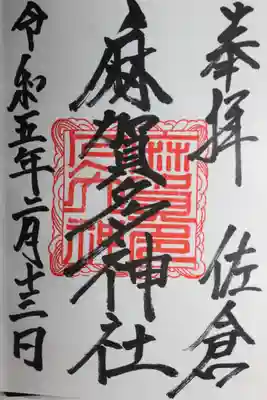 奉拝 佐倉
麻賀多神社
令和五年二月十三日